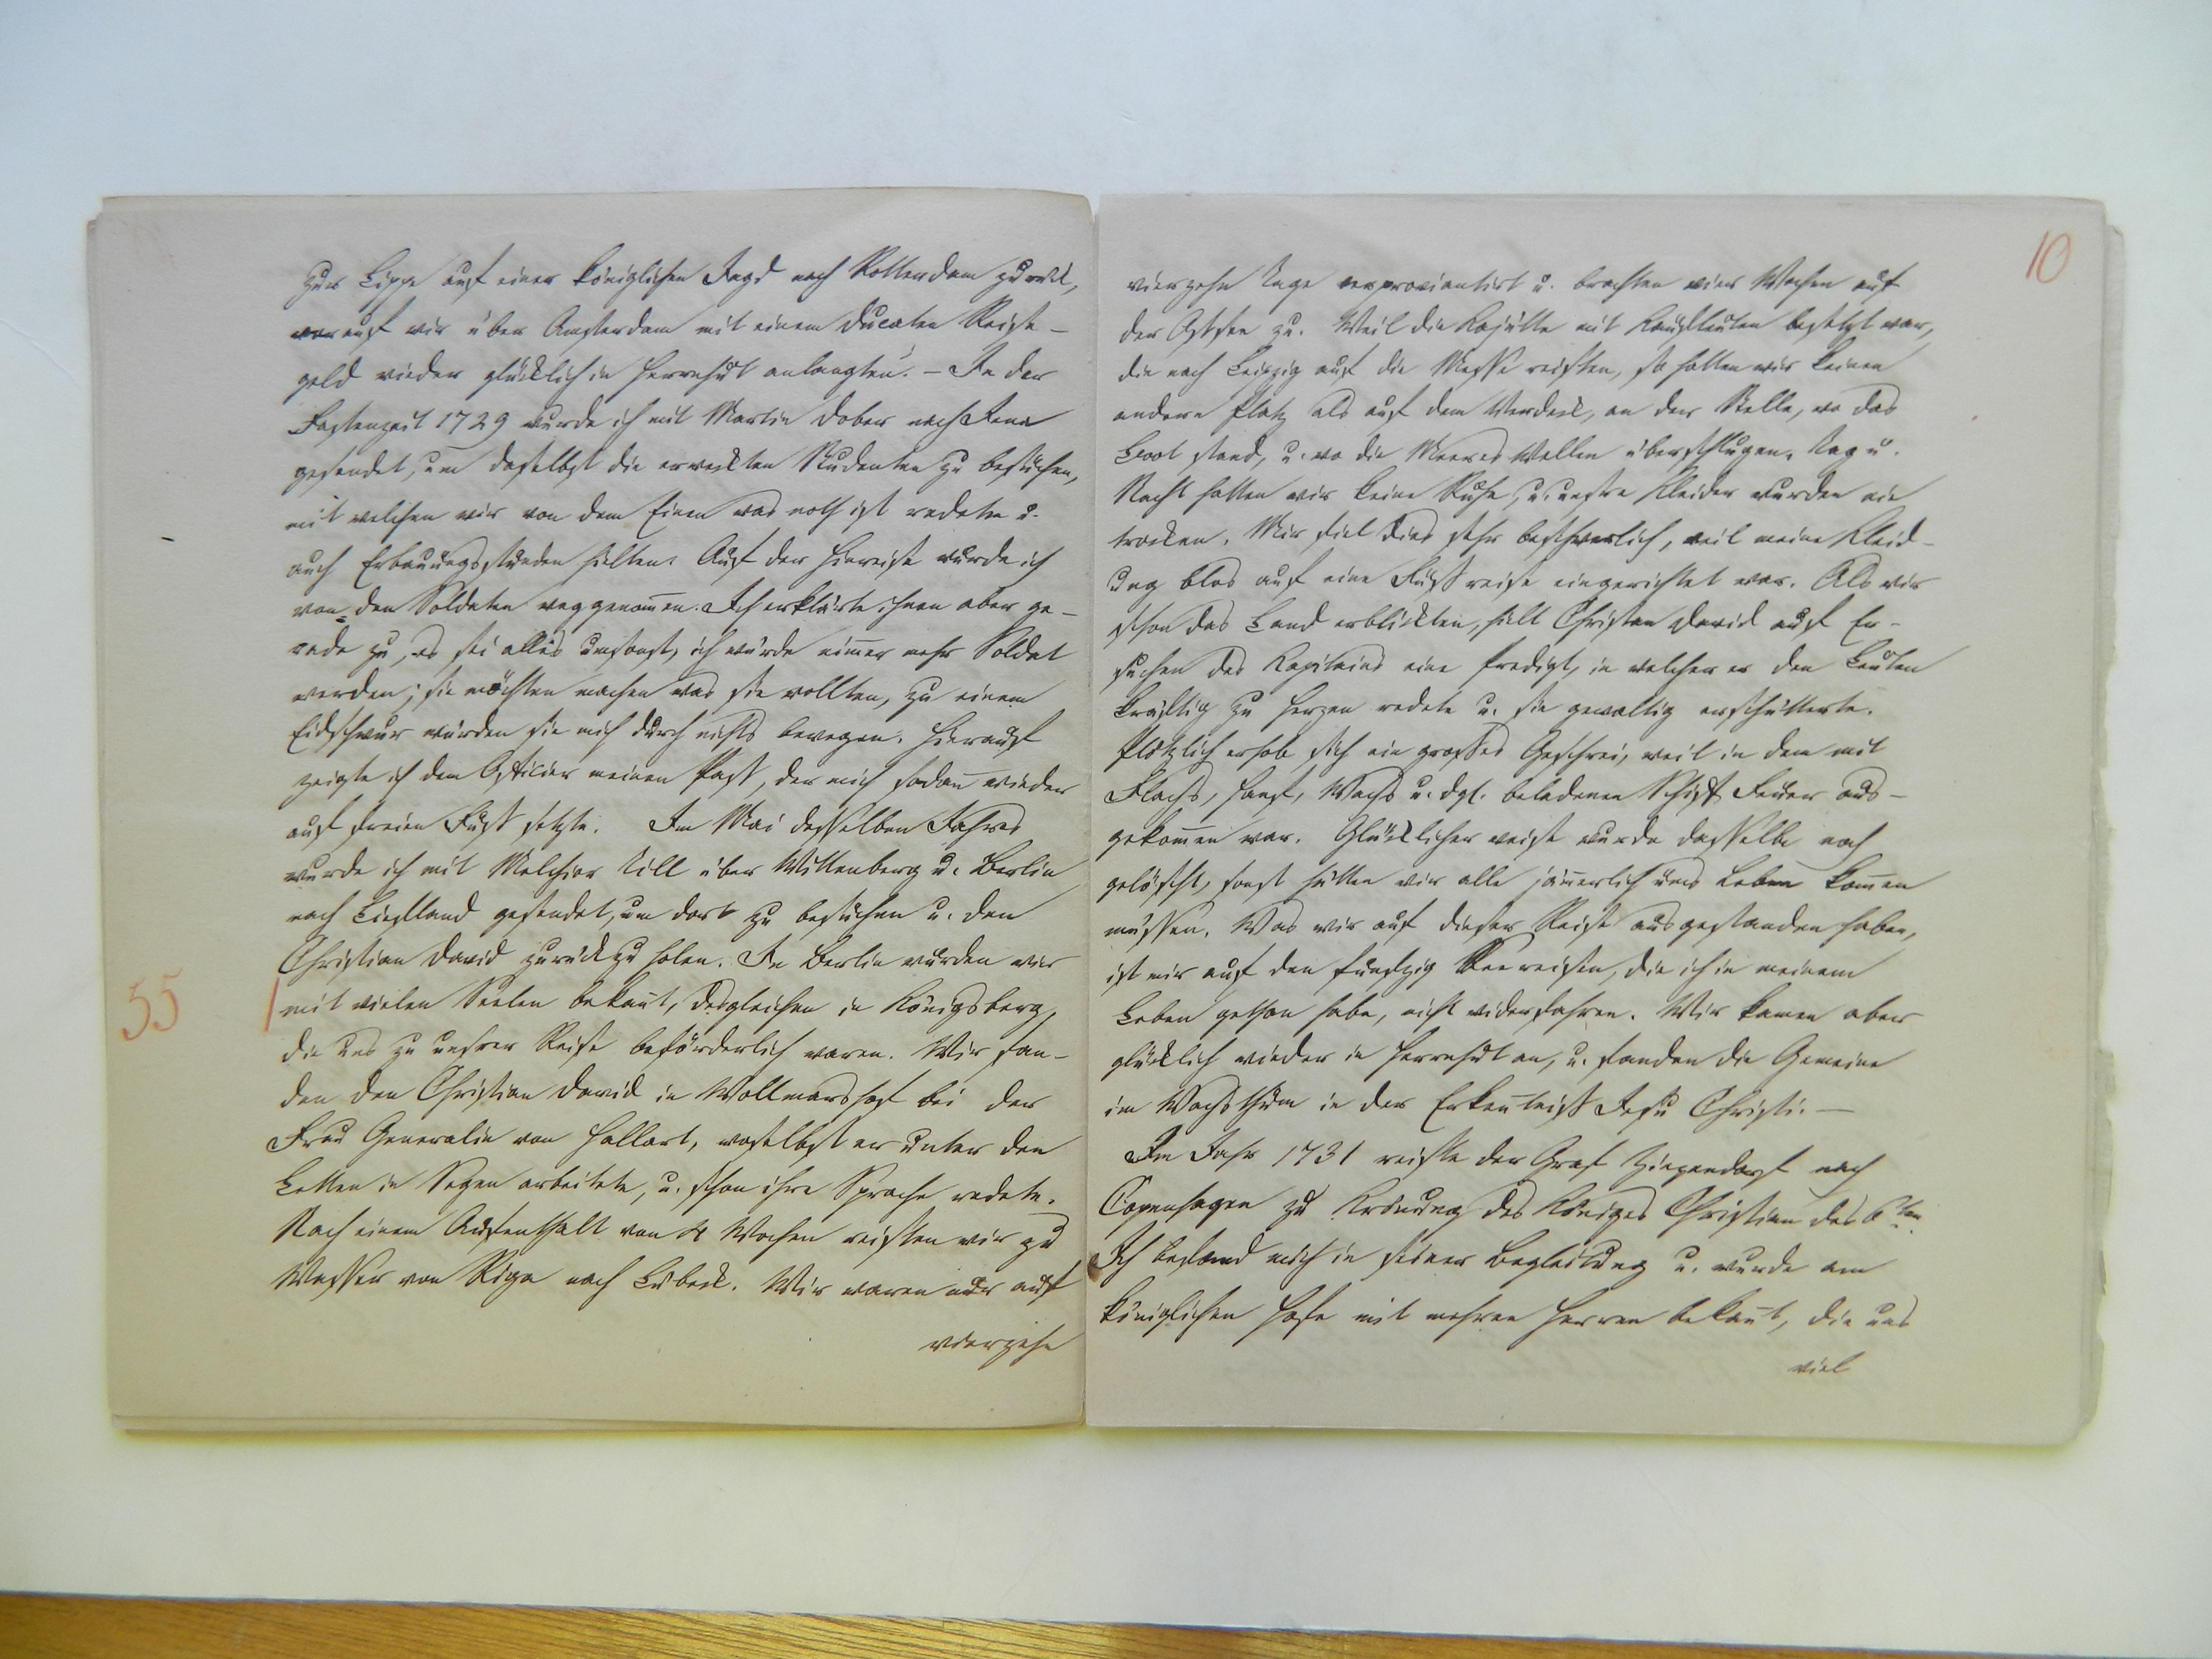 zur Lippe auf einer königlichen Jagd nach Rotterdam zurück,
worauf wir über Amsterdam mit einem Ducaten Reise-
geld wieder glücklich in Herrnhut anlangten. – In der
Fastenzeit 1729 wurde ich mit Martin Dober nach Jena
gesendet, um daselbst die erweckten Studenten zu besuchen,
mit welchen wir von dem Einen was noth ist redeten u.
auch Erbauungsstunden hielten. Auf der Hinreise wurde ich
von den Soldaten weggenom̅en. Ich erklärte ihnen aber ge-
rade zu, es sei alles umsonst, ich würde nim̅er mehr Soldat
werden; sie möchten machen was sie wollten, zu einem
Eidschwur würden sie mich durch nichts bewegen. Hierauf
zeigte ich dem Officier meinen Pass, der mich sodan̅ wieder
auf freien Fuss setzte. Im Mai desselben Jahres
wurde ich mit Melchior Till über Wittenberg u. Berlin
nach Liefland gesendet, um dort zu besuchen u. den
Christian David zurück zu holen. In Berlin wurden wir
55 mit vielen Seelen bekan̅t, desgleichen in Königsberg,
die uns zu unsrer Reise beförderlich waren. Wir fan-
den den Christian David in Wollmarshof bei der
Frau Generalin von Hallart, woselbst er unter den
Letten in Segen arbeitete, u. schon ihre Sprache redete.
Nach einem Aufenthalt von 4 Wochen reisten wir zu
Wasser von Riga nach Lübeck. Wir waren nur auf
vierzehn
10
vierzehn Tage verproviantirt u. brachten vier Wochen auf
der Ostsee zu. Weil die Kajütte mit Kaufleuten besetzt war,
die nach Leipzig auf die Messe reisten, so hatten wir keinen
andern Platz als auf dem Verdeck, an der Stelle, wo das
Boot stand, u. wo die Meeres Wellen überschlugen. Tag u.
Nacht hatten wir keine Ruhe, u. unsre Kleider wurden nie
trocken. Mir fiel dies sehr beschwerlich, weil meine Kleid-
ung blos auf eine Fussreise eingerichtet war. Als wir
schon das Land erblickten, hielt Christian David auf Er-
suchen des Kapitains eine Predigt, in welcher er den Leuten
kräftig zu Herzen redete u. sie gewaltig erschütterte.
Plötzlich erhob sich ein grosses Geschrei, weil in dem mit
Flachs, Hanf, Wachs u. dgl. beladenen Schiff Feuer aus-
gekom̅en war. Glücklicher weise wurde dasselbe noch
gelöscht, sonst hätten wir alle jäm̅erlich ums Leben kom̅en
müssen. Was wir auf dieser Reise ausgestanden haben,
ist mir auf den funfzig Seereisen, die ich in meinem
Leben gethan habe, nicht widerfahren. Wir kamen aber
glücklich wieder in Herrnhut an, u. fanden die Gemeine
im Wachsthum in der Erken̅tniss Jesu Christi. —
Im Jahr 1731 reiste der Graf Zinzendorf nach
Copenhagen zu Krönung des Königes Christian des 6ten.
Ich befand mich in seiner Begleitung u. wurde am
königlichen Hofe mit mehren Herren bekan̅t, die uns
viel